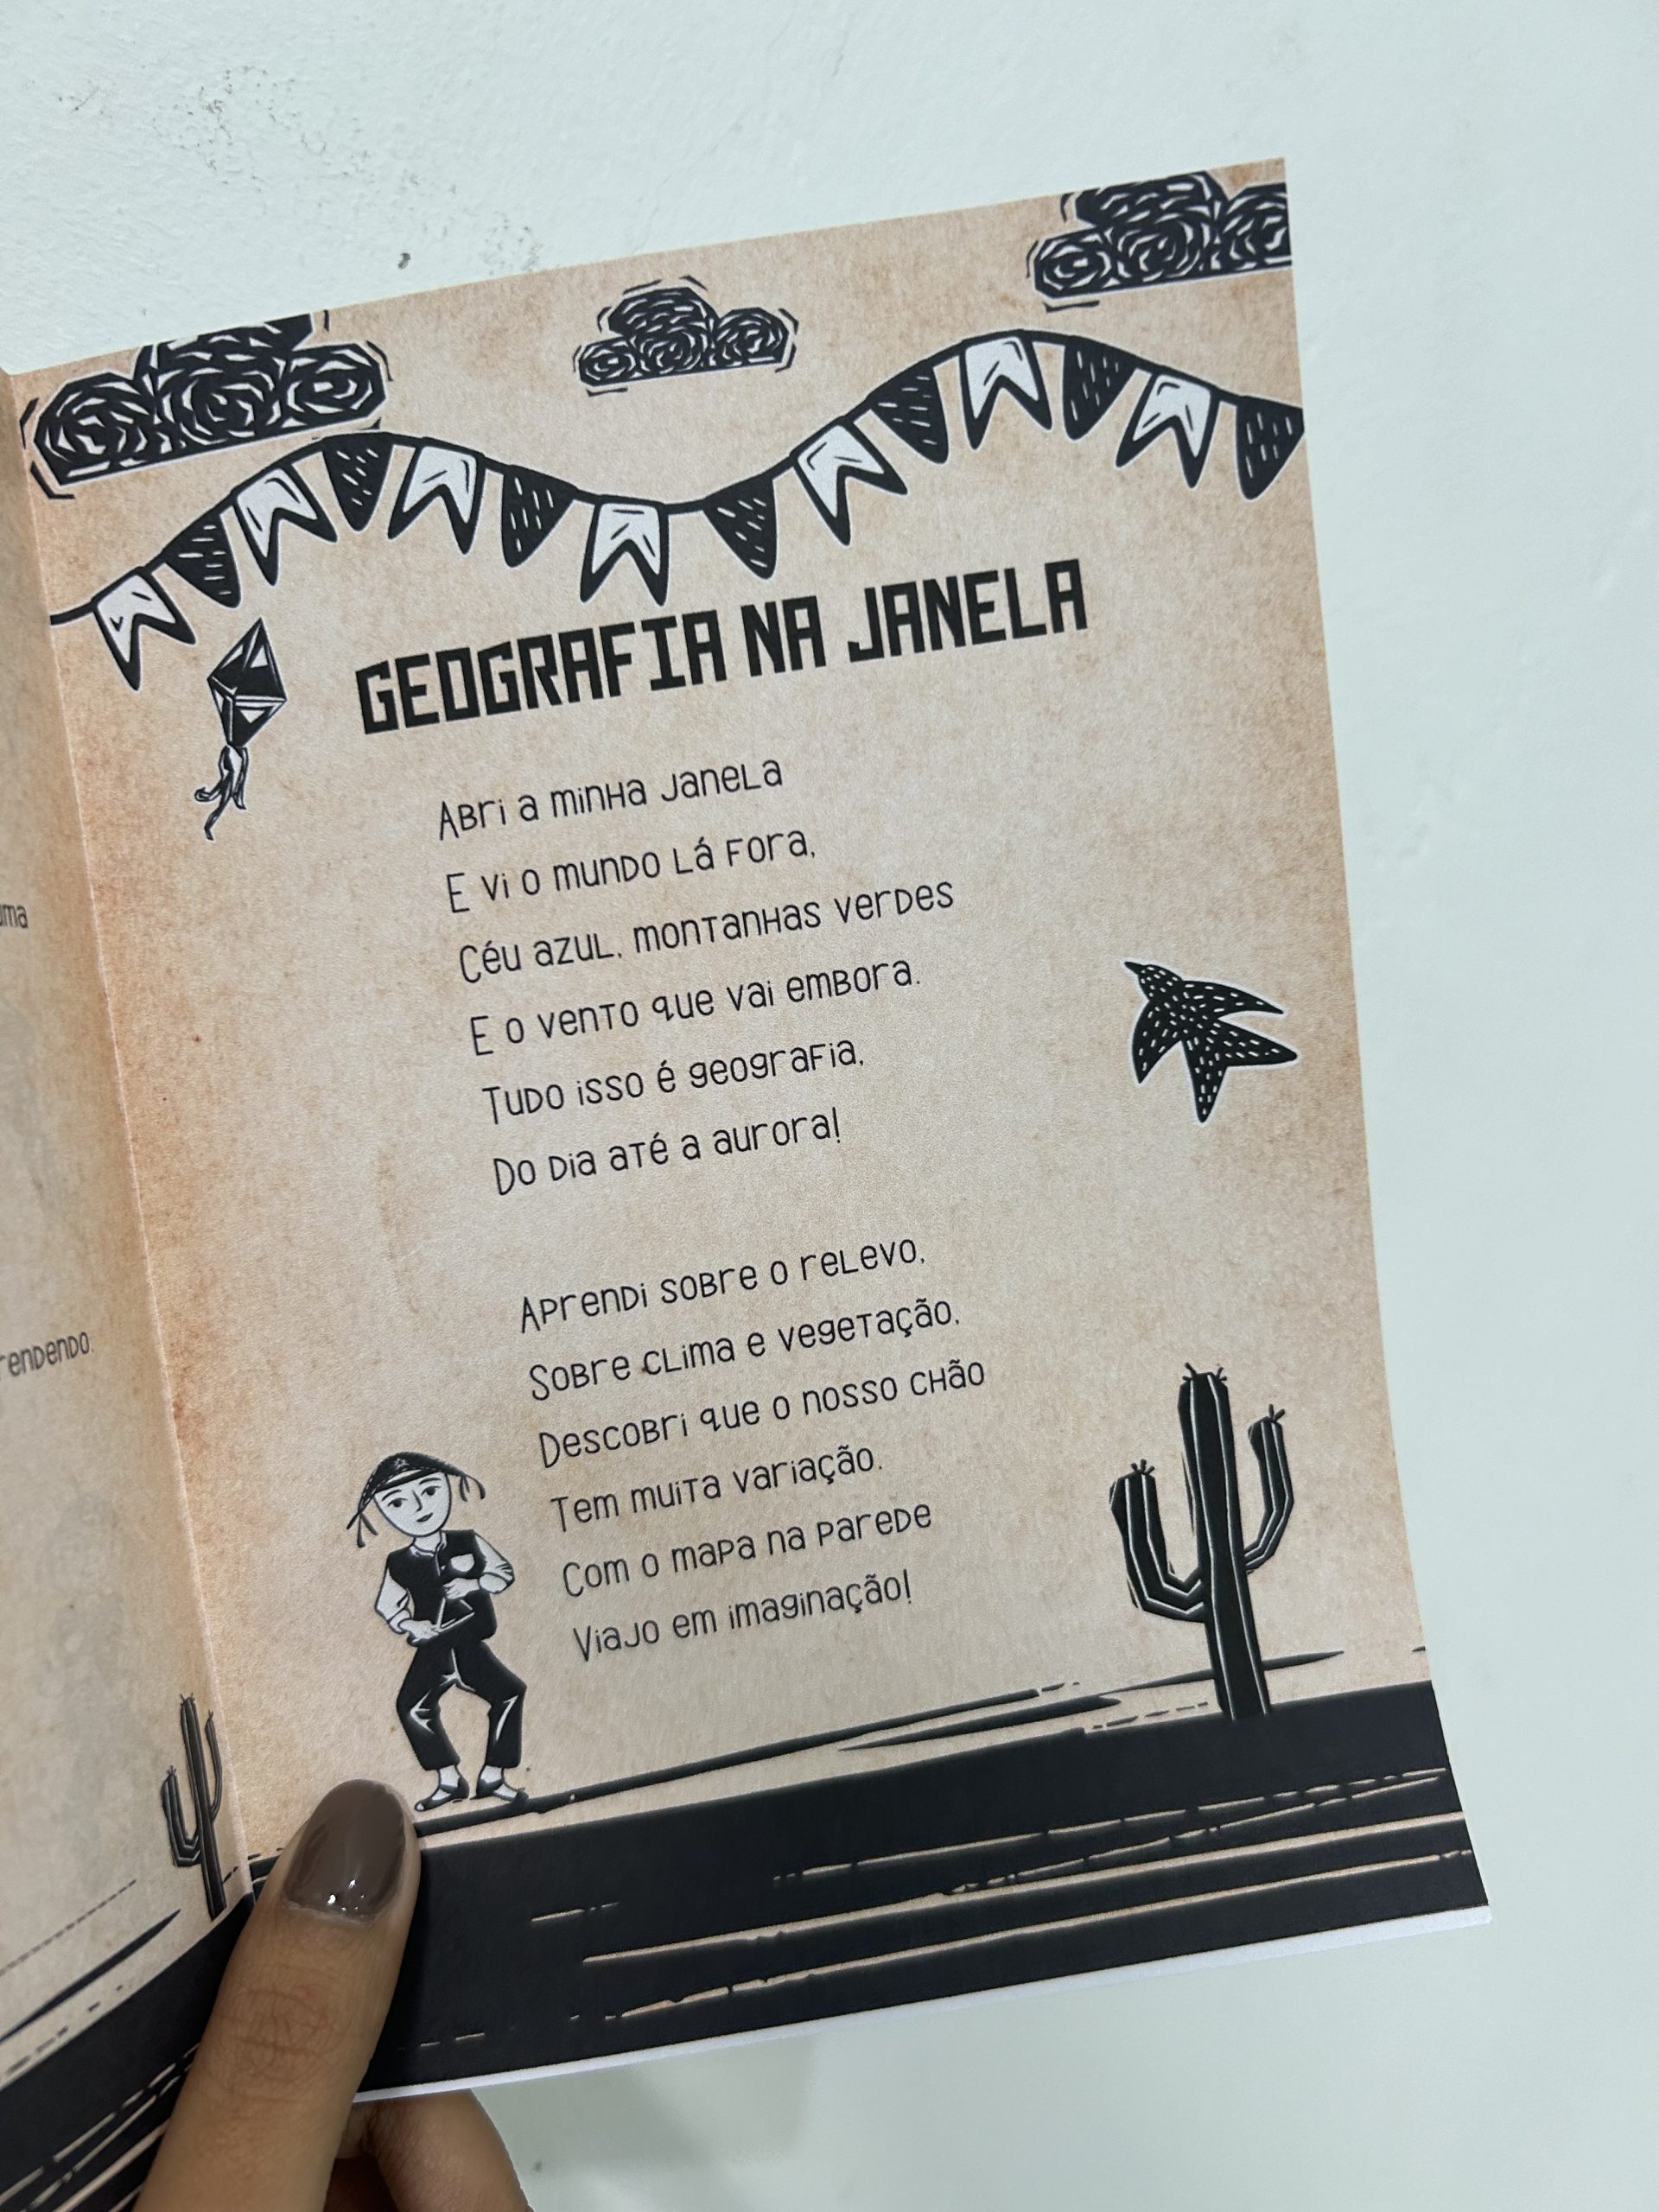 GEOGRAFIA NA JANELA
Abri a minha janela
E vi o mundo lá fora,
Céu azul, montanhas verdes
E o vento que vai embora.
Tudo isso é geografia,
Do dia até a aurora!
Aprendi sobre o relevo,
Sobre clima e vegetação,
Descobri que o nosso chão
Tem muita variação.
Com o mapa na parede
Viajo em imaginação!